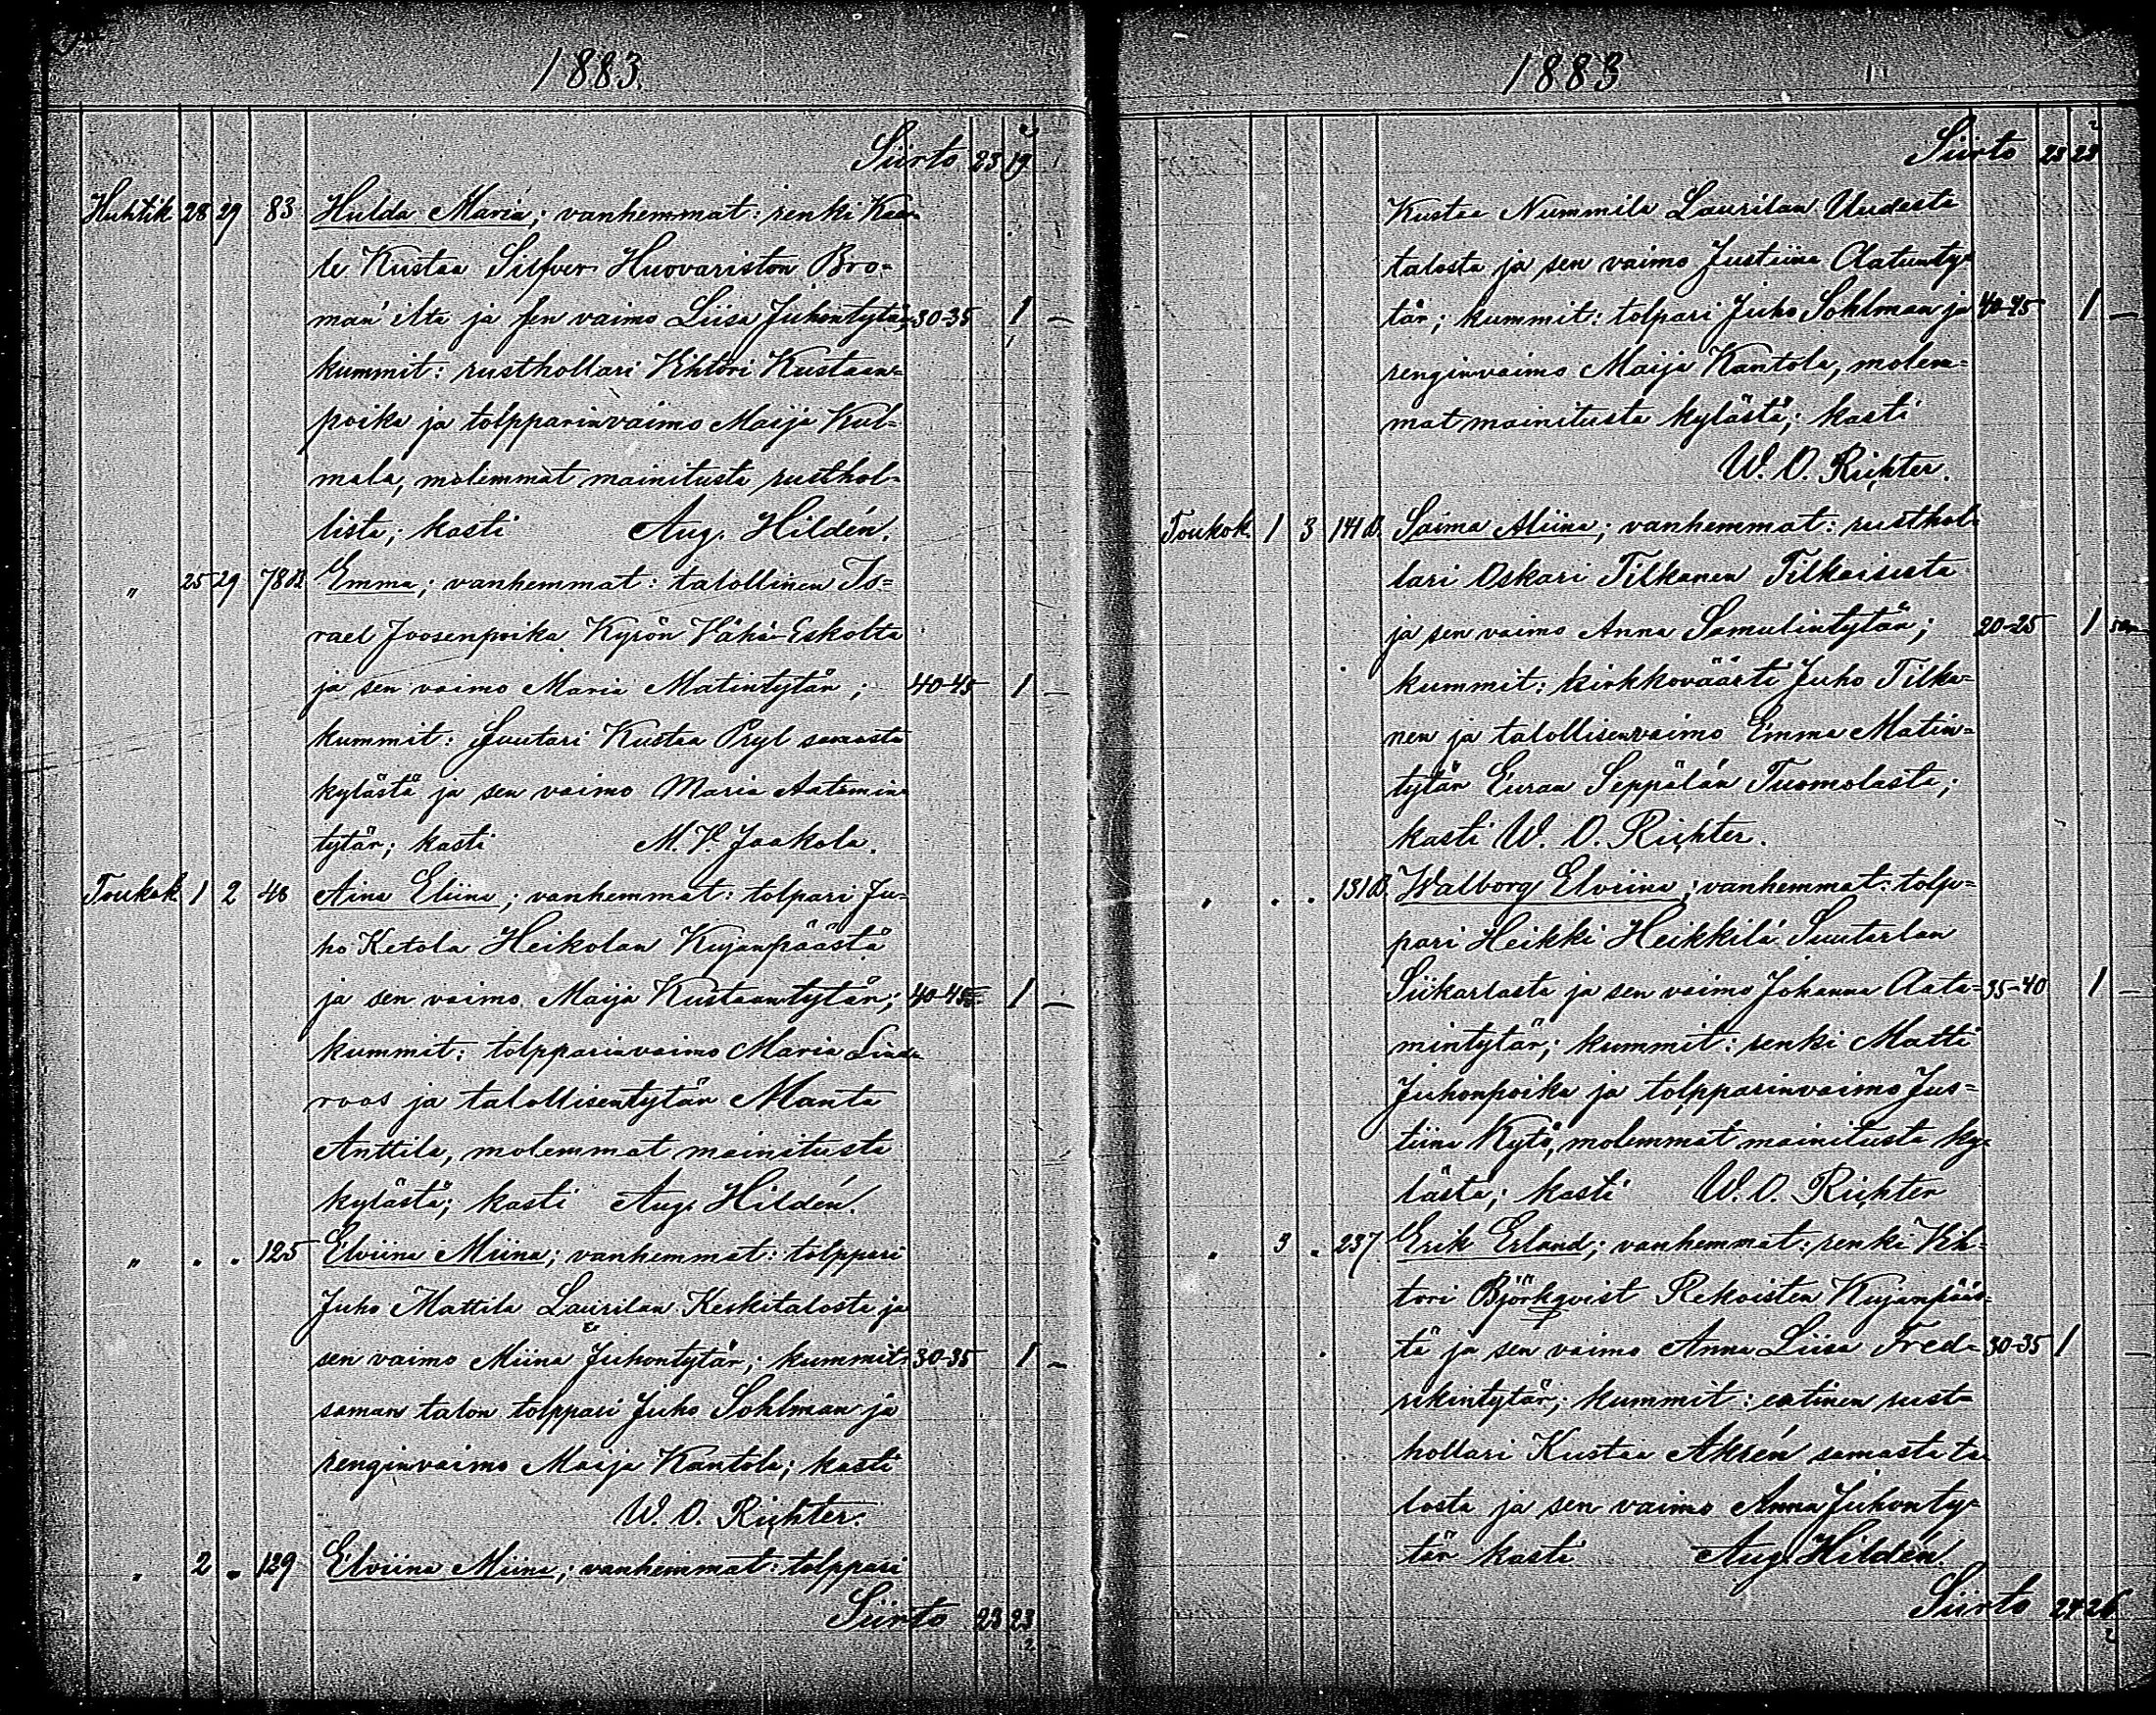 1883.
Siirto 23 19 2
Huhtik 28 29 83 Hulda Maria; vanhemmat: renki Kaar-
le Kustaa Silfver Huovariston Bro-
man'ilta ja sen vaimo Liisa Juhontytär; 30-35 1 –
kummit: rusthollari Vihtori Kustaan-
poika ja tolpparinvaimo Maija Kul-
mala, molemmat mainitusta rusthol-
lista; kasti Aug. Hildén.
„ 25 29 78B. Emma; vanhemmat: talollinen Is-
rael Joosenpoika Kyrön Vähä-Eskolta
ja sen vaimo Maria Matintytär; 40-45 1 –
kummit: Suutari Kustaa Pryl samasta
kylästä ja sen vaimo Maria Aatamin-
tytär; kasti M. V. Jaakola.
Toukok. 1 2 48 Aina Eliina; vanhemmat: tolpari Ju-
ho Ketola Heikolan Kujanpäästä
ja sen vaimo Maija Kustaantytär; 40-45 1 –
kummit: tolpparinvaimo Maria Lind-
roos ja talollisentytär Manta
Anttila, molemmat mainitusta
kylästä; kasti Aug. Hildén.
„ . . 125 Elviina Miina; vanhemmat: tolppari
Juho Mattila Laurilan Keskitalosta ja
sen vaimo Miina Juhontytär; kummit: 30-35 1 –
saman talon tolppari Juho Sohlman ja
renginvaimo Maija Kantola; kasti
W. O. Richter.
„ 2 „ 129 Elviina Miina; vanhemmat: tolppari
Siirto 23 23 2
1883
Siirto 23 23 2
Kustaa Nummila Laurilan Uudesta
talosta ja sen vaimo Justiina Aatunty-
tär; kummit: tolpari Juho Sohlman ja 40-45 1 –
renginvaimo Maija Kantola, molem-
mat mainitusta kylästä; kasti
W. O. Richter.
Toukok. 1 3 141B. Saima Aliina; vanhemmat: rusthol-
lari Oskari Tilkanen Tilkaisista
ja sen vaimo Anna Samulintytär; 20-25 1
kummit: kirkkoväärti Juho Tilka-
nen ja talollisenvaimo Emma Matin-
tytär Euran Seppälän Tuomolasta;
kasti W. O. Richter.
„ . . 131B. Walborg Elviina; vanhemmat: tolp-
pari Heikki Heikkilä Suutarlan
Siikarlasta ja sen vaimo Johanna Aata- 35-40 1 –
mintytär; kummit: renki Matti
Juhonpoika ja tolpparinvaimo Jus-
tiina Kytö, molemmat mainitusta ky-
lästä; kasti W. O. Richter
„ 3 „ 237. Erik Erland; vanhemmat: renki Vih-
tori Björkqvist Rekoisten Kujanpääs-
tä ja sen vaimo Anna Liisa Fred- 30-35 1 –
rikintytär; kummit: entinen rust-
hollari Kustaa Aksén samasta ta-
losta ja sen vaimo Anna Juhonty-
tär kasti Aug. Hildén.
Siirto 24 26 2